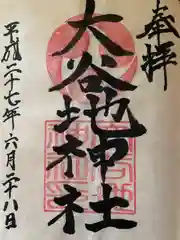 奉拝
大谷地神社
平成二十七年六月二十八日